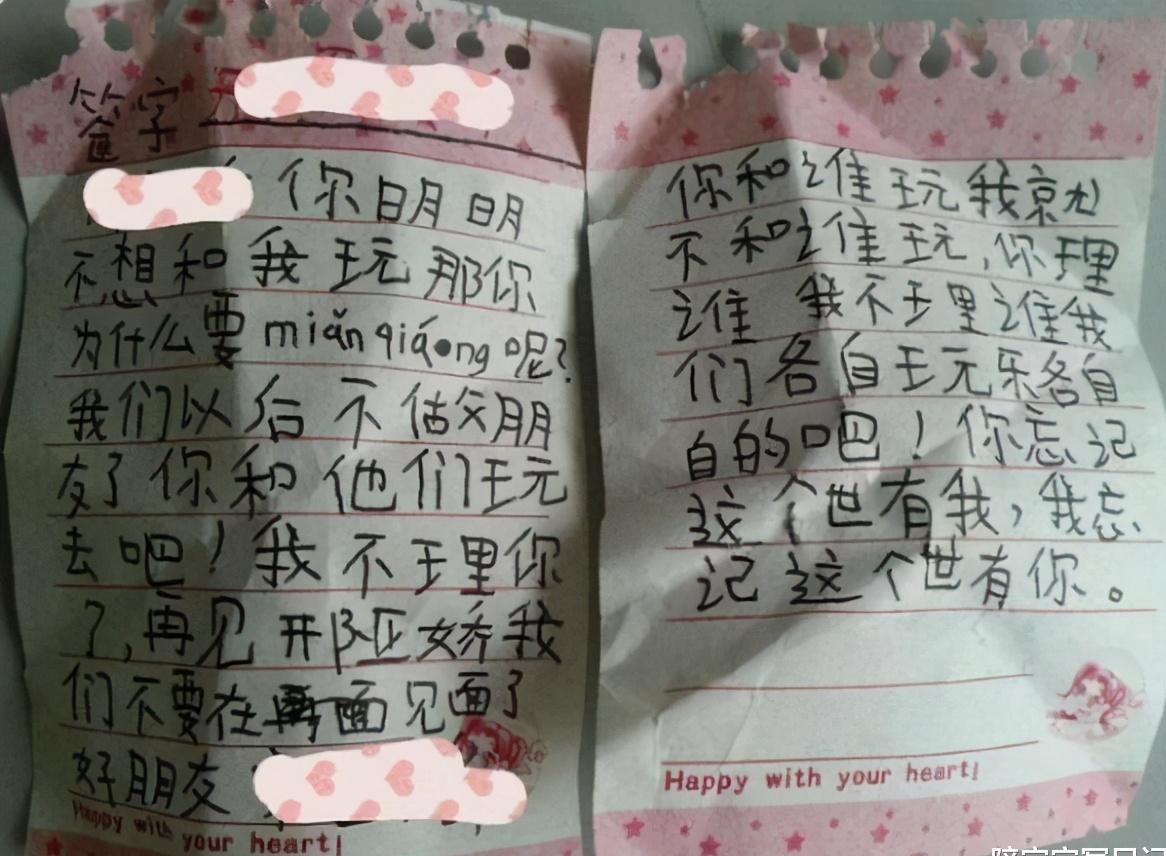 签字
你明明
不想和我玩那你
为什么要miǎnqiáng呢?
我们以后不估父朋
友了你和他们玩
去吧!我不理你
了,再见开阿娇我
们不要在面见面了
好朋友
Happy with your heart!
你和谁玩我就
不和谁玩,你理
谁 我不理谁我
们各自玩乐各自
自的吧!你忘记
这个世有我,我忘
记这个世有你。
Happy with your heart!